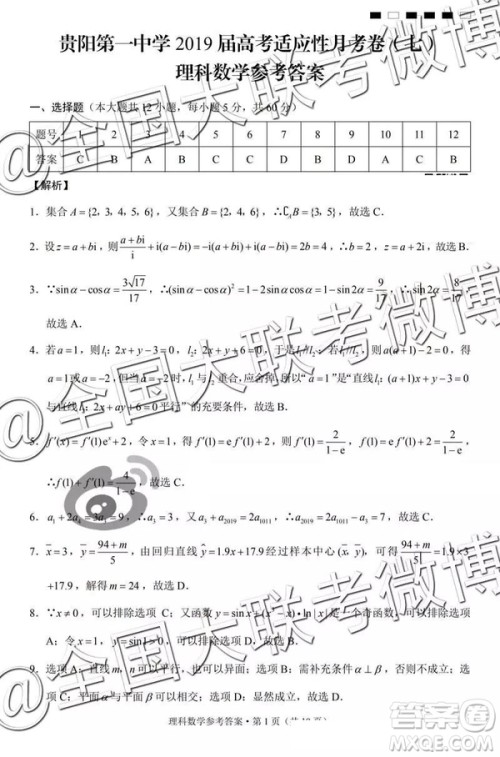 贵阳第一中学 2019 届高考适应性月考卷（七）
理科数学参考答案
一、选择题（本大题共 12 小题，每小题 5 分，共 60 分）
题号 1 2 3 4 5 6 7 8 9 10 11 12
答案 C B A B C C B D
【解析】
1．集合 A={2，3，4，5，6}，又集合 B={2，4，6}，∴∁_A B={3，5}，故选 C．
2．设 z=a+bi，则 (a+bi)/i + i(a-bi)=-i(a+bi)+i(a-bi)=2b=4，∴b=2，z=a+2i，故选 B．
3．∵sinα-cosα=3√17/17，∴(sinα-cosα)²=1-2sinαcosα=1-sin2α=9/17，∴sin2α=8/17，
故选 A．
4．若 a=1，则 l₁：2x+y-3=0，l₂：2x+y+6=0，于是 l₁//l₂．若 l₁//l₂，则 a(a+1)-2=0，解
得 a=1 或 a=-2，但当 a=-2 时，l₁与 l₂重合，应舍掉．所以 “a=1” 是 “直线 l₁：(a+1)x+y-3=0
与直线 l₂：2x+ay+6=0 平行” 的充要条件，故选 B．
5．f′(x)=f′(1)eˣ+2，令 x=1，得 f′(1)=e f′(1)+2，则 f′(1)=2/(1-e)，f(1)=2/(1-e)，
∴f(1)+f′(1)=4/(1-e)，故选 C．
6．
∴a₃=3，又 a₃+a₂₀₁₉=2a₁₀₁₁，∴2a₁₀₁₁-a₂₀₁₉=a₃
故选 C．
7．x̄=3，ȳ=(94+m)/5，由回归直线 ŷ=1.9x+17.9 经过样本中心 (x̄，ȳ)，可得 (94+m)/5=1.9×3
+17.9，解得 m=24，故选 B．
8．∵x≠0，可以排除选项 C；又函数
是一个奇函数，可以排除选项
A；令 x=1，y=sin1>0，可以排除选项 B，故选 D．
9．选项 A：直线 m，n 可以平行，也可以异面；选项 B：需补充条件 α⊥β，否则不成立；选
项 C：α⊥β；选项 D：显然成立，故选 D．
理科数学参考答案·第 1 页
@全国大联考微博
@全国大联考微博
@全国大联考微博